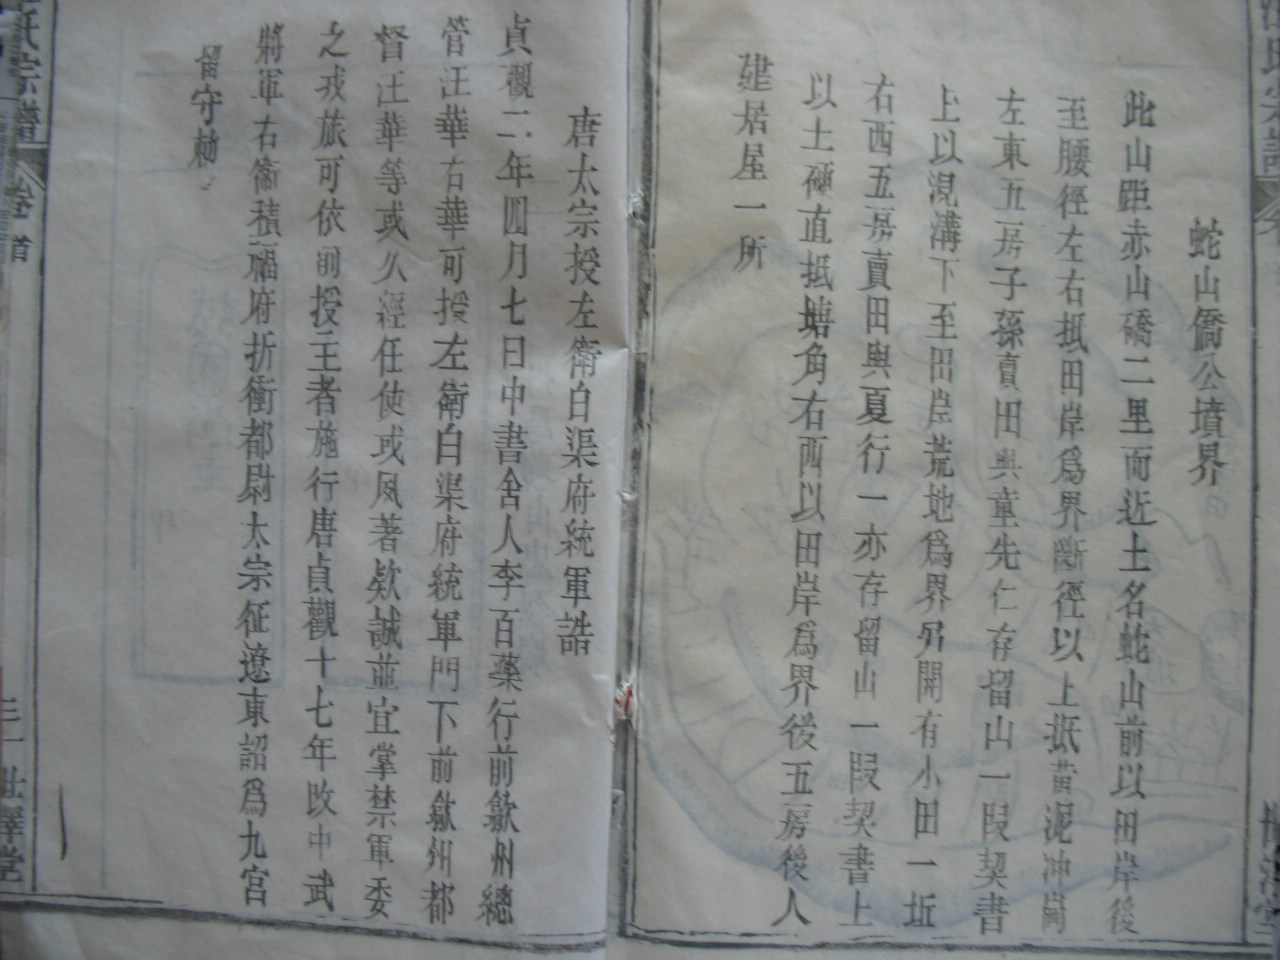 蛇山僑公墳界
此山距赤山礄二里而近土名蛇山前以田岸後
至腰徑左右抵田岸爲界斷徑以上抵黃泥冲崗
左東五房子孫賣田與童先仁存留山一叚契書
上以涀溝下至田岸荒地爲界另開有小田一坵
右西五房賣田與夏行一亦存留山一叚契書上
以土硾直抵塘角右西以田岸爲界後五房後人
建居屋一所
唐太宗授左衛白渠府統軍誥
貞觀二年四月七日中書舍人李百藥行前歙州總
管汪華右華可授左衛白渠府統軍門下前歙州都
督汪華等或久經任使或夙著欵誠並宜掌禁軍委
之戎旅可依前授主者施行唐貞觀十七年改中武
將軍右衞積福府折衝都尉太宗征遼東詔爲九宮
留守勅
氏宗譜
卷首
三
世澤堂